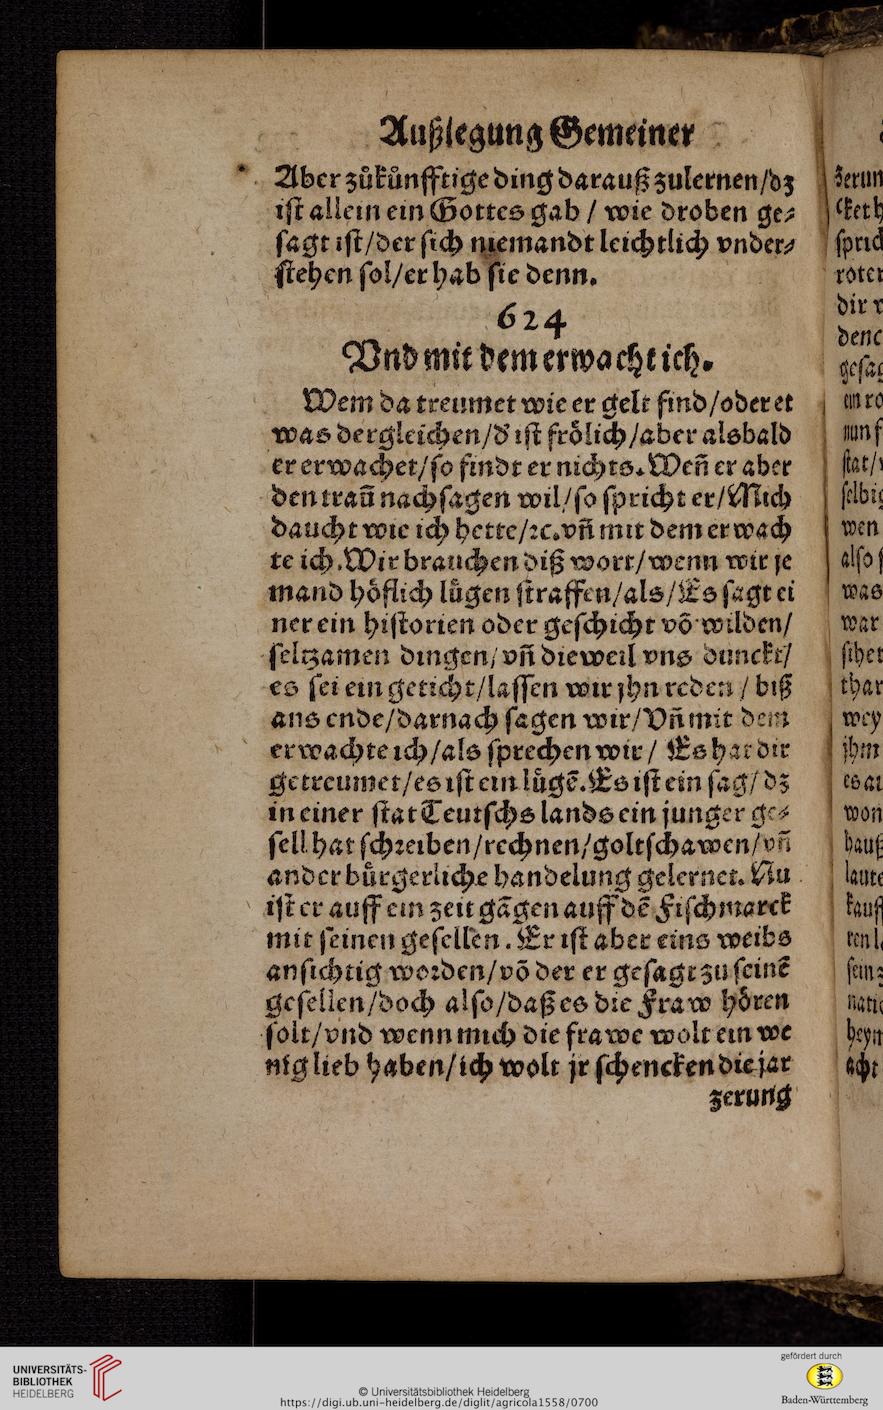 Außlegung Gemeiner
Aber zůkůnfftige ding darauß zulernen/dz
ist allein ein Gottes gab / wie droben ge⸗
sagt ist/der sich niemandt leichtlich vnder⸗
stehen sol/er hab sie denn.
624
Vnd mit dem erwacht ich.
Wem da treumet wie er gelt find/oder et
was dergleichen/d' ist frőlich/aber alsbald
er erwachet/so findt er nichts. Weñ er aber
den traũ nachsagen wil/so spricht er/Mich
daucht wie ich hette/ꝛc. vñ mit dem erwach
te ich. Wir brauchen diß wort/wenn wir je
mand hőflich lůgen straffen/als/Es sagt ei
ner ein historien oder geschicht võ wilden/
seltzamen dingen/vñ dieweil vns dunckt/
es sei ein geticht/lassen wir jhn reden / biß
ans ende/darnach sagen wir/Vñ mit dem
erwachte ich/als sprechen wir / Es hat dir
getreumet/es ist ein lůgẽ. Es ist ein sag/ dz
in einer stat Teutschs lands ein junger ge⸗
sell hat schꝛeiben/rechnen/goltschawen/vñ
ander bůrgerliche handelung gelernet. Nu
ist er auff ein zeit gãgen auff dẽ Fischmarck
mit seinen gesellen. Er ist aber eins weibs
ansichtig woꝛden/võ der er gesagt zu seinẽ
gesellen/doch also/daß es die Fraw hőren
solt/vnd wenn mich die frawe wolt ein we
nig lieb haben/ich wolt jr schencken die jar
zerung
zerun
cket h
sprich
roter
dir
denc
gesag
ein ro
nun s
stat/
selbig
wen
also
was
war
sihet
thar
wey
jhm
es al
won
hauß
laute
kauf
ren l
sein
natio
heyn
acht
UNIVERSITÄTS-
BIBLIOTHEK
HEIDELBERG
© Universitätsbibliothek Heidelberg
https://digi.ub.uni-heidelberg.de/diglit/agricola1558/0700
gefördert durch
Baden-Württemberg